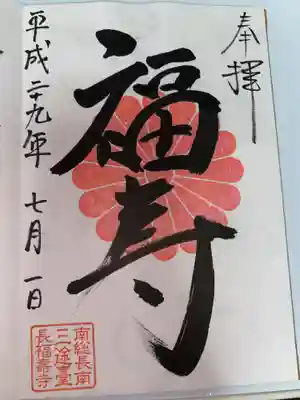 奉拝
福寿
平成二十九年 七月 一日
南総長南
三途臺
長福壽寺